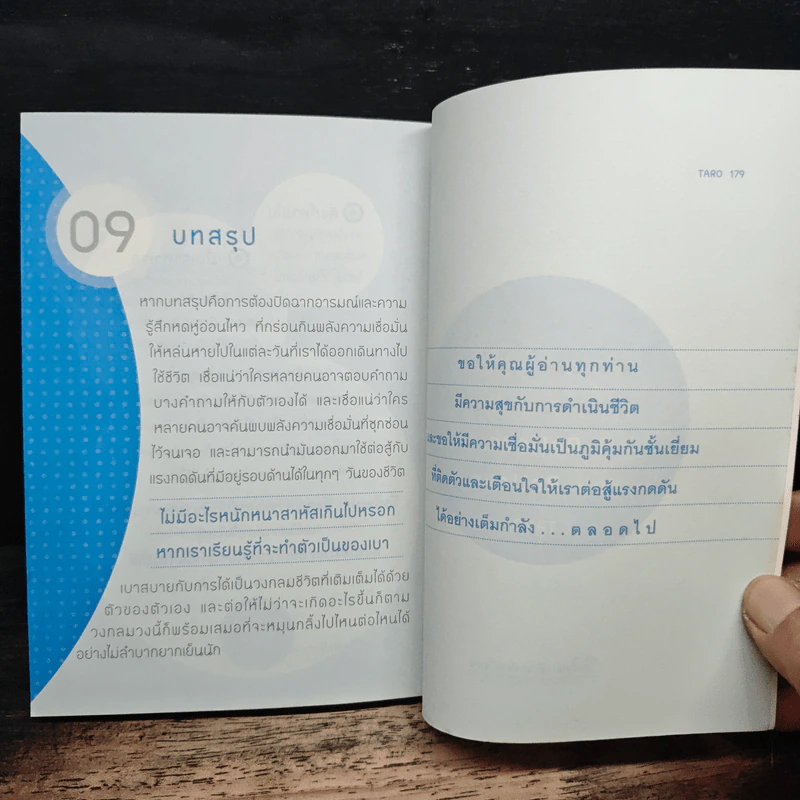 09 บทสรุป
หากบทสรุปคือการต้องปิดฉากอารมณ์และความ
รู้สึกหดหู่อ่อนไหว ที่กร่อนกินพลังความเชื่อมั่น
ให้หล่นหายไปในแต่ละวันที่เราได้ออกเดินทางไป
ใช้ชีวิต เชื่อแน่ว่าใครหลายคนอาจตอบคำถาม
บางคำถามให้กับตัวเองได้ และเชื่อแน่ว่าใคร
หลายคนอาจค้นพบพลังความเชื่อมั่นที่ซุกซ่อน
ไว้จนเจอ และสามารถนำมันออกมาใช้ต่อสู้กับ
แรงกดดันที่มีอยู่รอบด้านได้ในทุกๆ วันของชีวิต
ไม่มีอะไรหนักหนาสาหัสเกินไปหรอก
หากเราเรียนรู้ที่จะทำตัวเป็นของเบา
เบาสบายกับการได้เป็นวงกลมชีวิตที่เติมเต็มได้ด้วย
ตัวของตัวเอง และต่อให้ไม่ว่าจะเกิดอะไรขึ้นก็ตาม
วงกลมวงนี้ก็พร้อมเสมอที่จะหมุนกลิ้งไปไหนต่อไหนได้
อย่างไม่ลำบากยากเย็นนัก
TARO 179
ขอให้คุณผู้อ่านทุกท่าน
มีความสุขกับการดำเนินชีวิต
และขอให้มีความเชื่อมั่นเป็นภูมิคุ้มกันชั้นเยี่ยม
ที่ติดตัวและเตือนใจให้เราต่อสู้แรงกดดัน
ได้อย่างเต็มกำลัง ... ตลอดไป